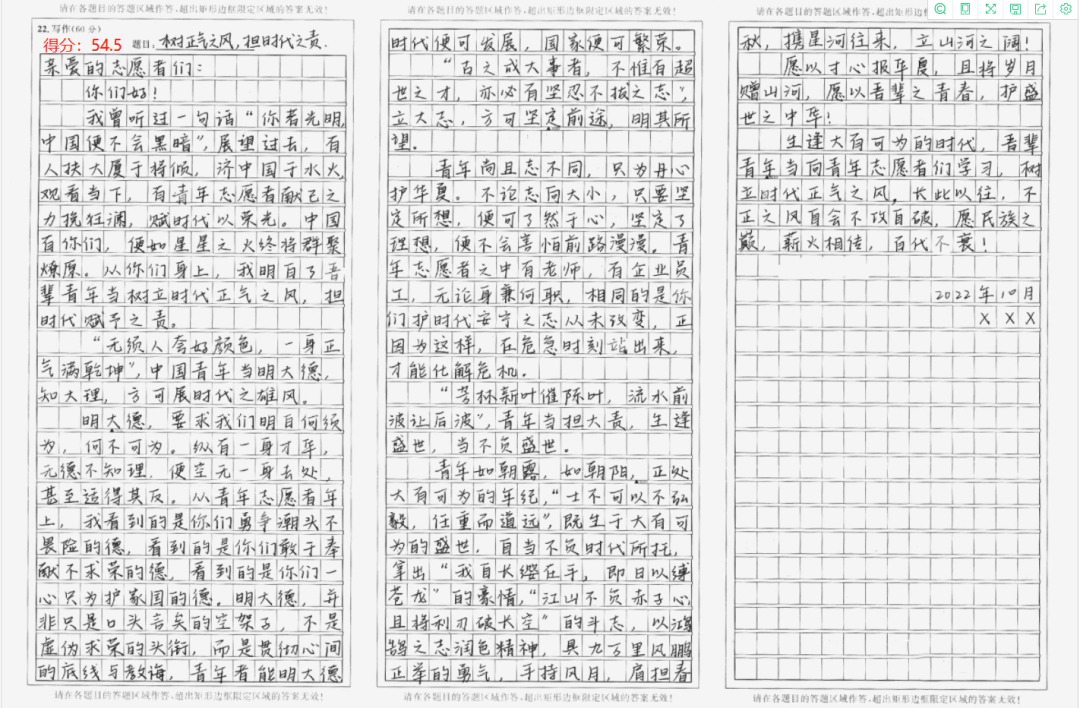 请在各题目的答题区域作答,超出矩形边框限定区域的答案无效!
22. 写作(60分)
得分：54.5
题目: 树正气之风，担时代之责.
亲爱的志愿者们：
你们好！
我曾听过一句话“你若光明，
中国便不会黑暗”，展望过去，有
人扶大厦于将倾，济中国于水火，
观看当下，百青年志愿者献己之
力挽狂澜，赋时代以荣光。中国
百你们，便如星星之火终将群聚
燎原。从你们身上，我明白了吾
辈青年当树立时代正气之风，担
时代赋予之责。
“无须人夸好颜色，一身正
气满乾坤”，中国青年当明大德，
知大理，方可展时代之雄风。
明大德，要求我们明白何须
为，何不可为。纵有一身才华，
无德不知理，便空无一身去处，
甚至适得其反。从青年志愿者年
上，我看到的是你们勇争潮头不
畏险的德，看到的是你们敢于奉
献不求荣的德，看到的是你们一
心只为护家国的德。明大德，并
非只是口头言矣的空架子，不是
虚伪求荣的头衔，而是贯彻心间
的底线与教诲，青年者能明大德
请在各题目的答题区域作答,超出矩形边框限定区域的答案无效!
请在各题目的答题区域作答,超出矩形边框限定区域的答案无效!
时代便可发展，国家便可繁荣。
“古之成大事者，不惟有超
世之才，亦必有坚忍不拔之志”，
立大志，方可坚定前途，明其所
望。
青年尚且志不同，只为丹心
护华夏。不论志向大小，只要坚
定所想，便可了然于心，坚定了
理想，便不会害怕前路漫漫。青
年志愿者之中有老师，有企业员
工，无论身兼何职，相同的是你
们护时代安宁之志从未改变，正
因为这样，在危急时刻站出来，
才能化解危机。
“芳林新叶催陈叶，流水前
波让后波”，青年当担大责，生逢
盛世，当不负盛世。
青年如朝露，如朝阳，正处
大有可为的年纪，“士不可以不弘
毅，任重而道远”，既生于大有可
为的盛世，自当不负时代所托，
拿出“我自长缨在手，即日以缚
苍龙”的豪情，“江山不负赤子心，
且将利刃破长空”的斗志，以鸿
鹄之志润色精神，具九万里风鹏
正举的勇气，手持风月，肩担春
请在各题目的答题区域作答,超出矩形边框限定区域的答案无效!
请在各题目的答题区域作答,超出矩形边框限定
秋，携星河往来，立山河之阔！
愿以寸心报华夏，且将岁月
赠山河，愿以吾辈之青春，护盛
世之中华！
生逢大有可为的时代，吾辈
青年当向青年志愿者们学习，树
立时代正气之风，长此以往，不
正之风自会不攻自破，愿民族之
巅，薪火相传，百代不衰！
2022年10月
XXX
请在各题目的答题区域作答,超出矩形边框限定区域的答案无效!